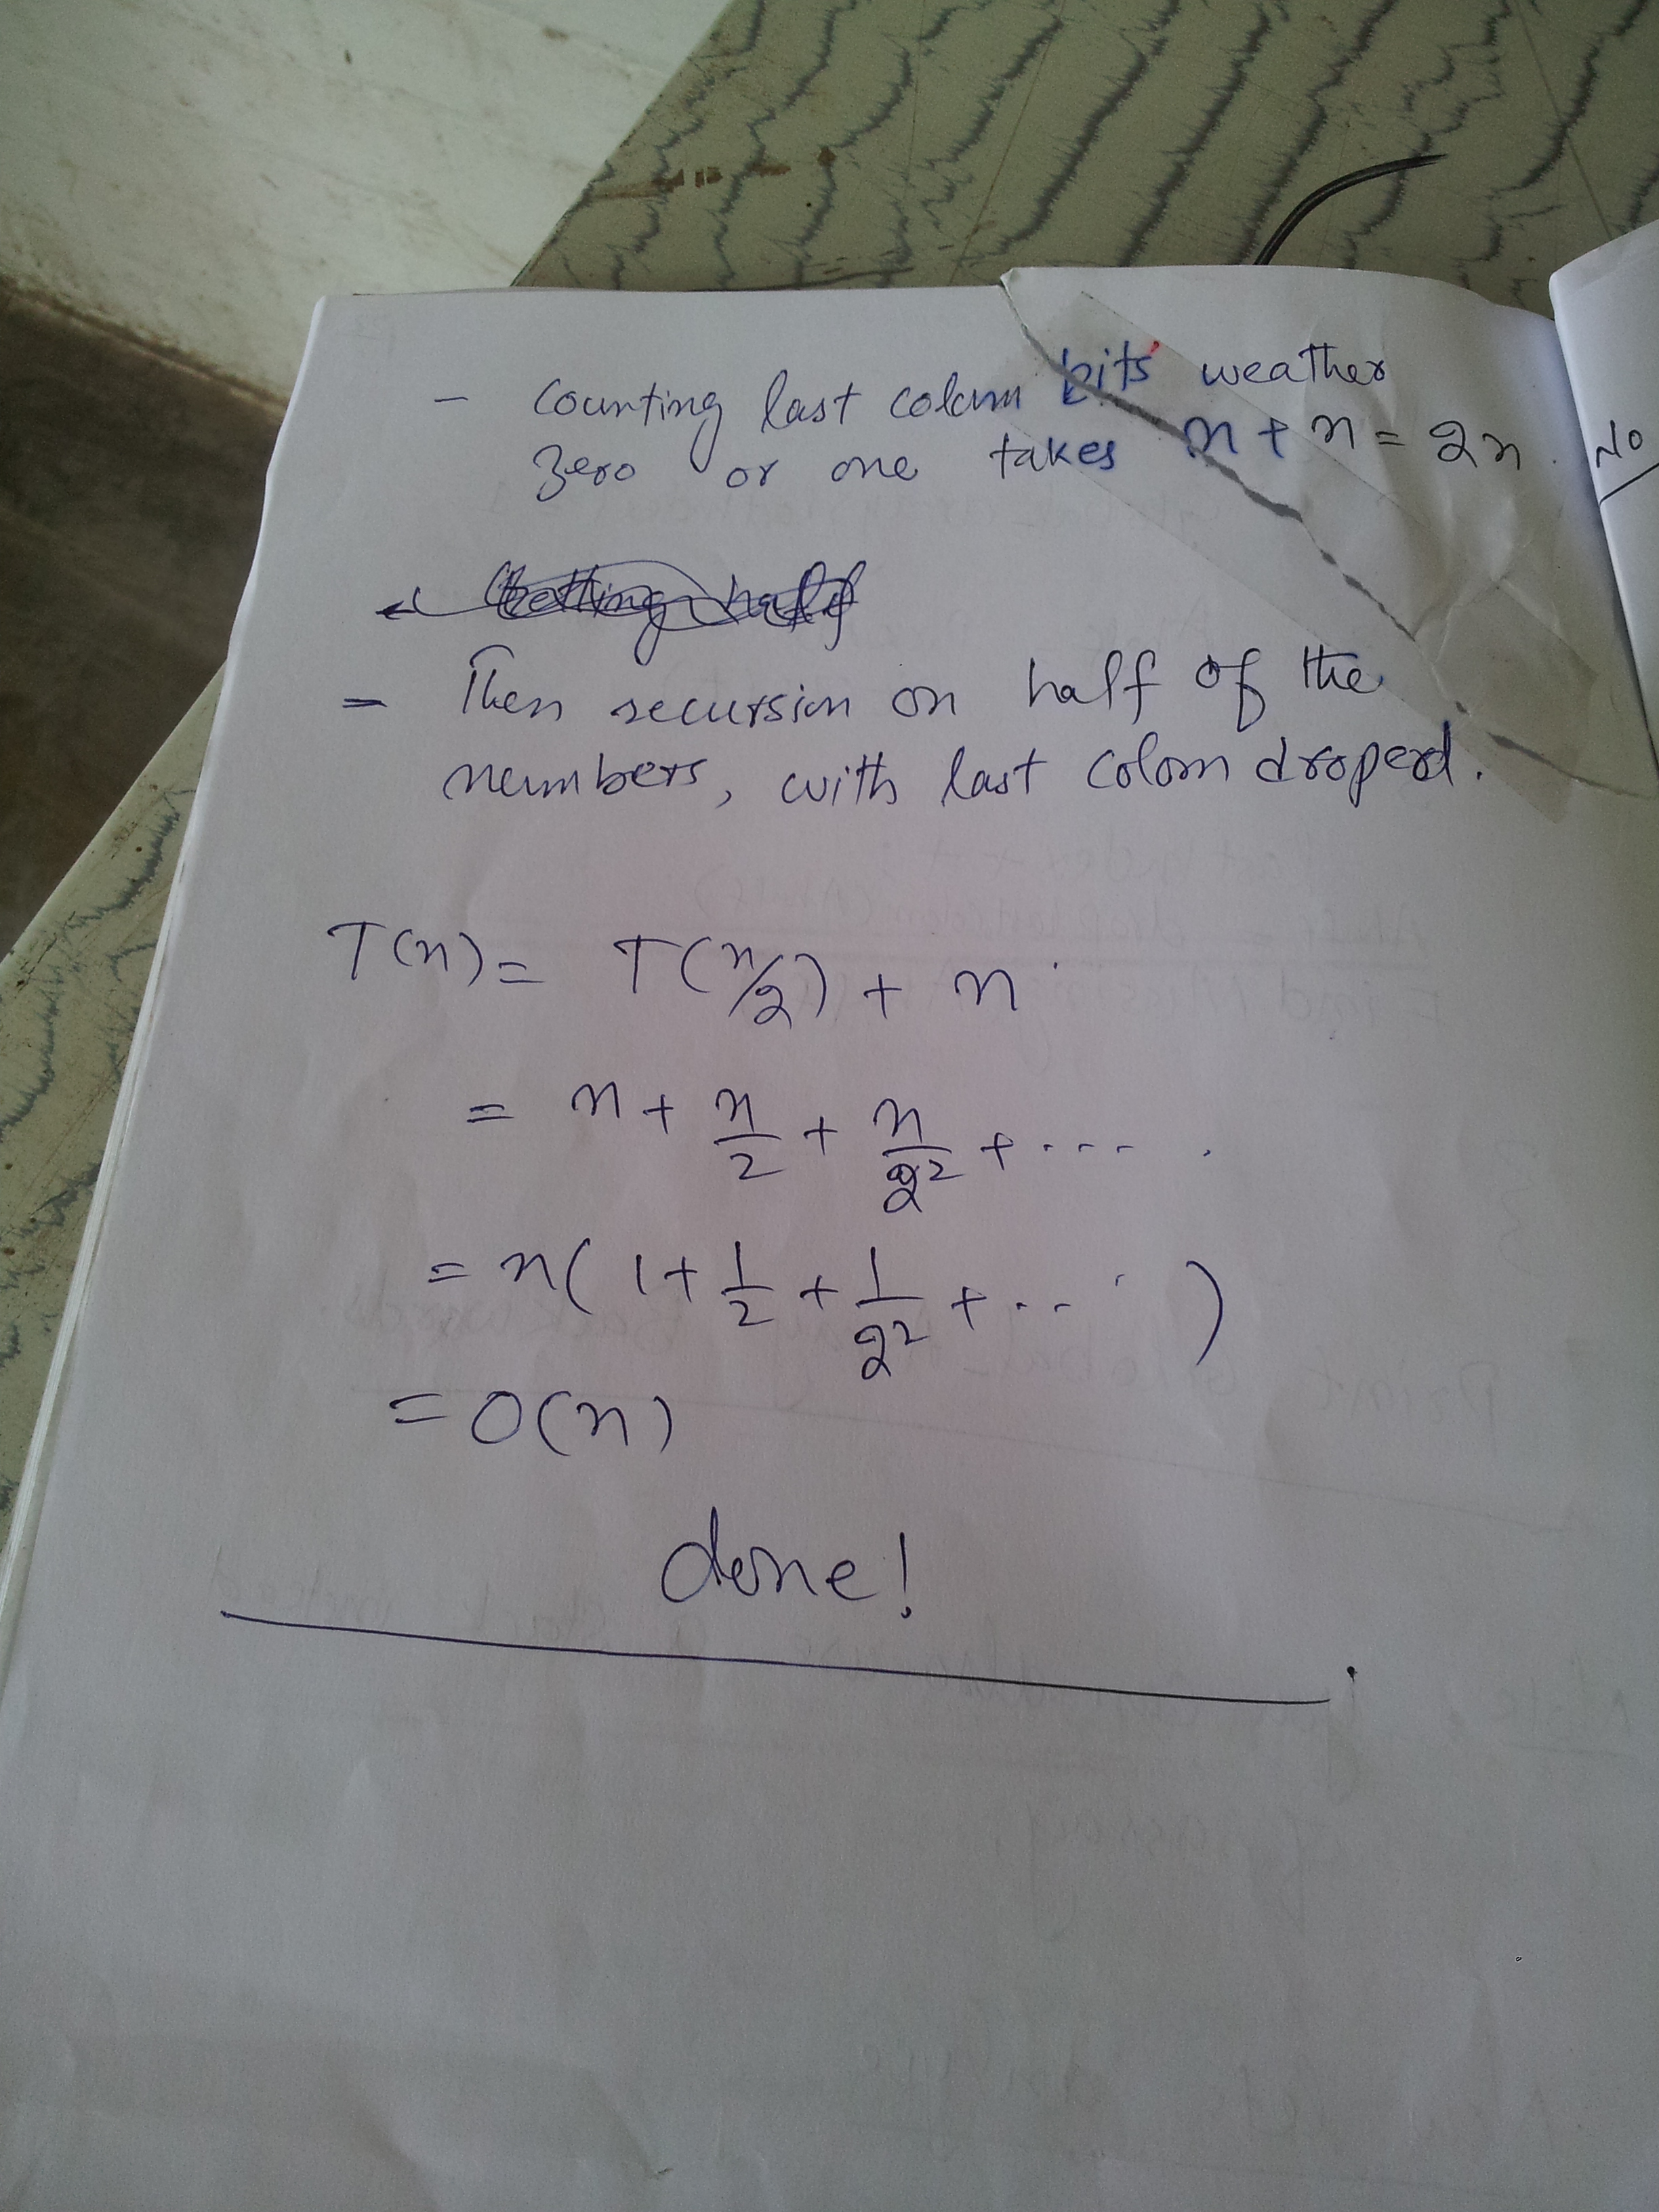 - Counting last colom bits weather
zero or one takes n + n = 2n
- Then recursion on half of the
numbers, with last colom droped.
T(n) = T(n/2) + n
= n + n/2 + n/2² + ....
= n(1 + 1/2 + 1/2² + ....)
= O(n)
done!
No